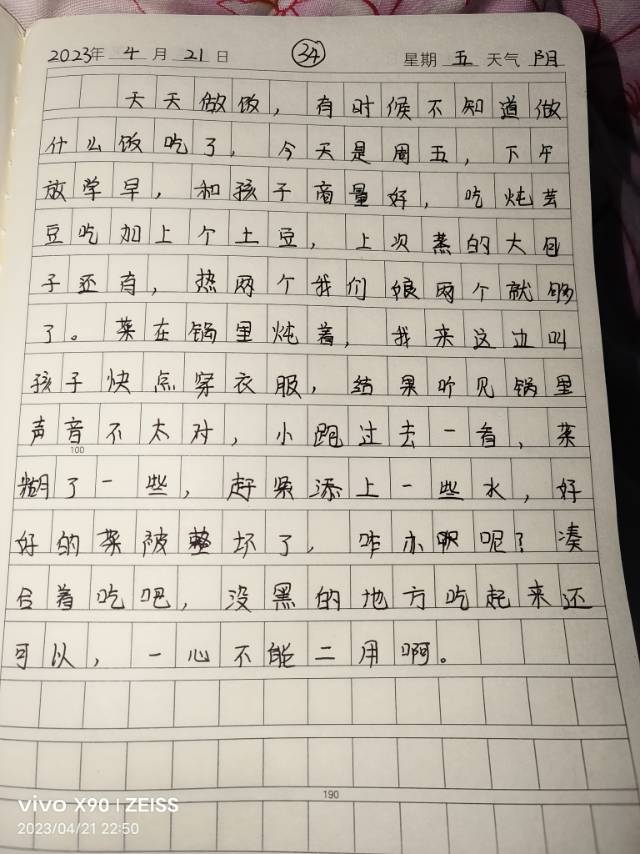 2023年 4 月 21 日 34 星期 五 天气 阴
天天做饭，有时候不知道做
什么饭吃了，今天是周五，下午
放学早，和孩子商量好，吃炖芸
豆吃加上个土豆，上次蒸的大包
子还有，热两个我们娘两个就够
了。菜在锅里炖着，我来这边叫
孩子快点穿衣服，结果听见锅里
声音不太对，小跑过去一看，菜
100
糊了一些，赶紧添上一些水，好
好的菜被整坏了，咋办呢？凑
合着吃吧，没黑的地方吃起来还
可以，一心不能二用啊。
190
vivo X90 | ZEISS
2023/04/21 22:50